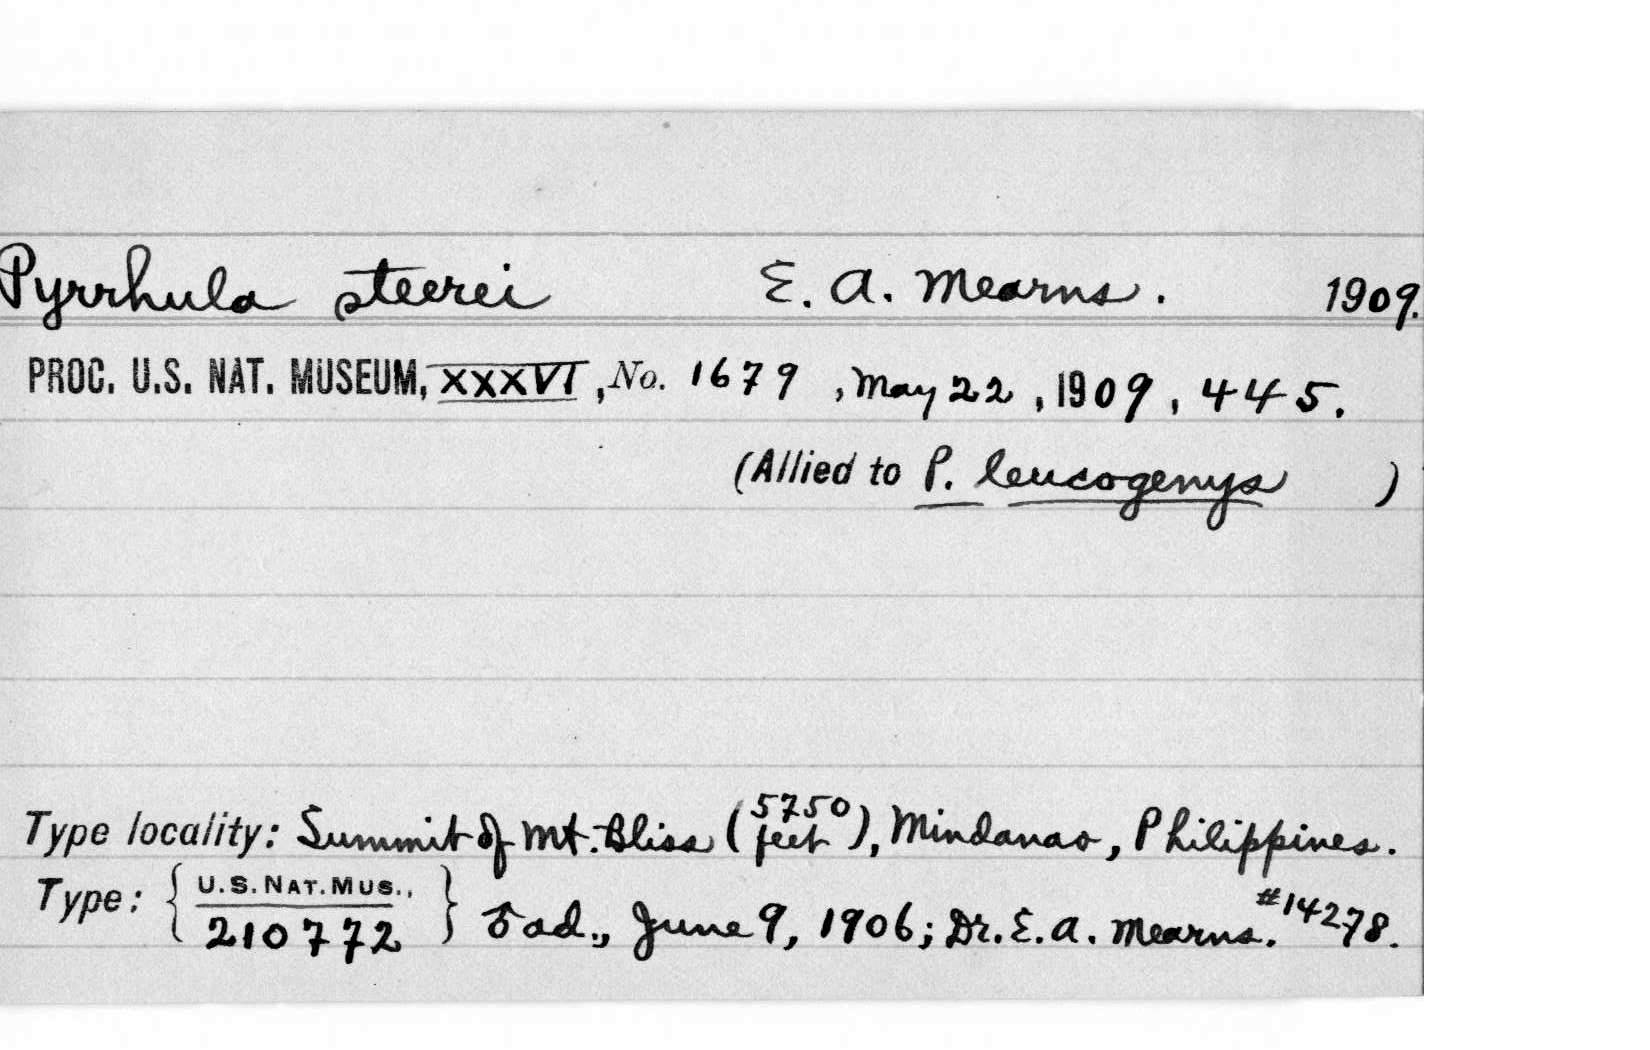 Pyrrhula steerei E. A. Mearns. 1909.
PROC. U.S. NAT. MUSEUM, XXXVI, No. 1679, May 22, 1909, 445.
(Allied to P. leucogenys )
Type locality: Summit of Mt. Bliss (5750 feet), Mindanao, Philippines.
Type: { U.S. NAT. MUS., 210772 } ♂ ad., June 9, 1906; Dr. E. A. Mearns. #14278.